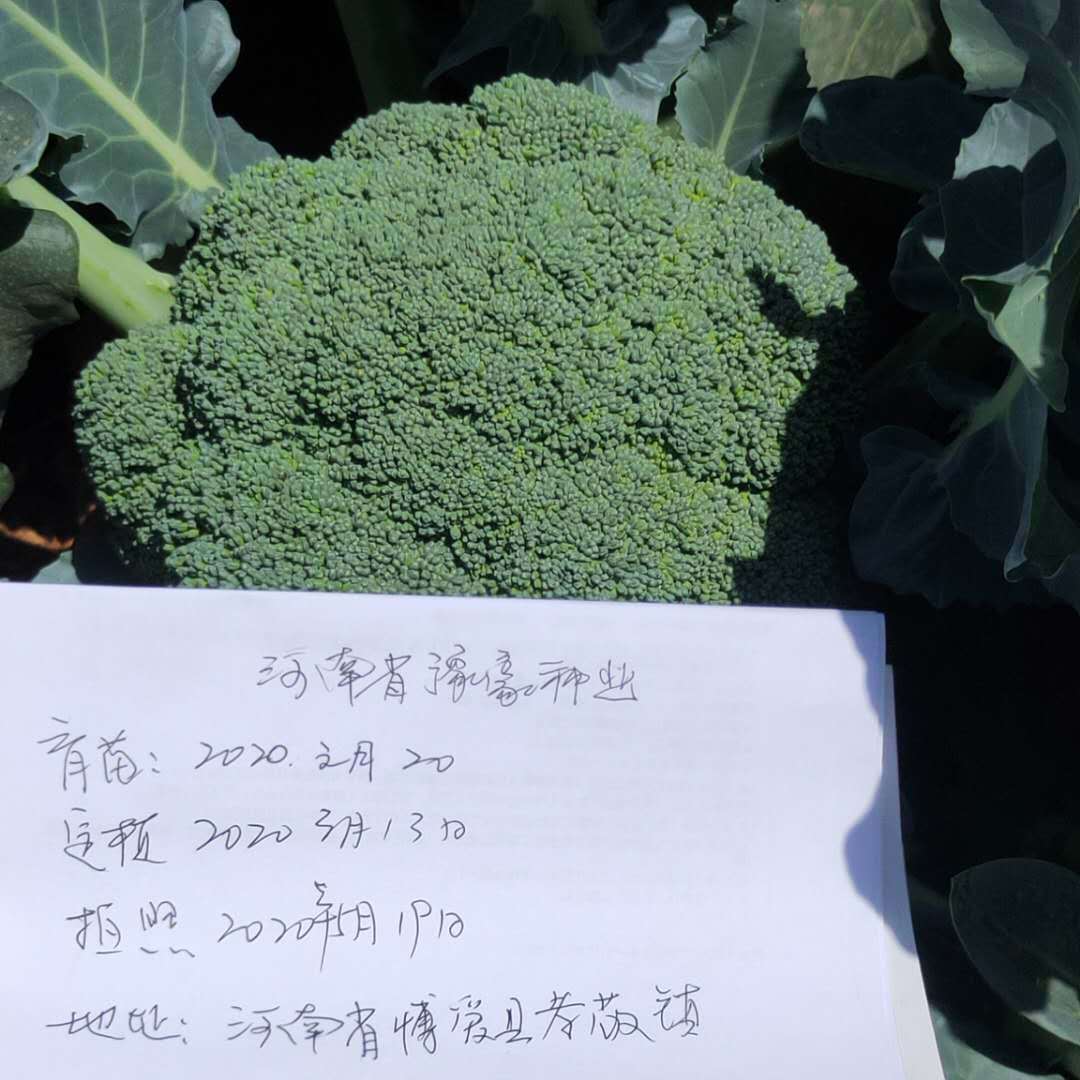 河南省豫豪种业
育苗: 2020. 2月 20
定植 2020 3月13日
拍照 2020年5月19日
地址: 河南省博爱县孝敬镇